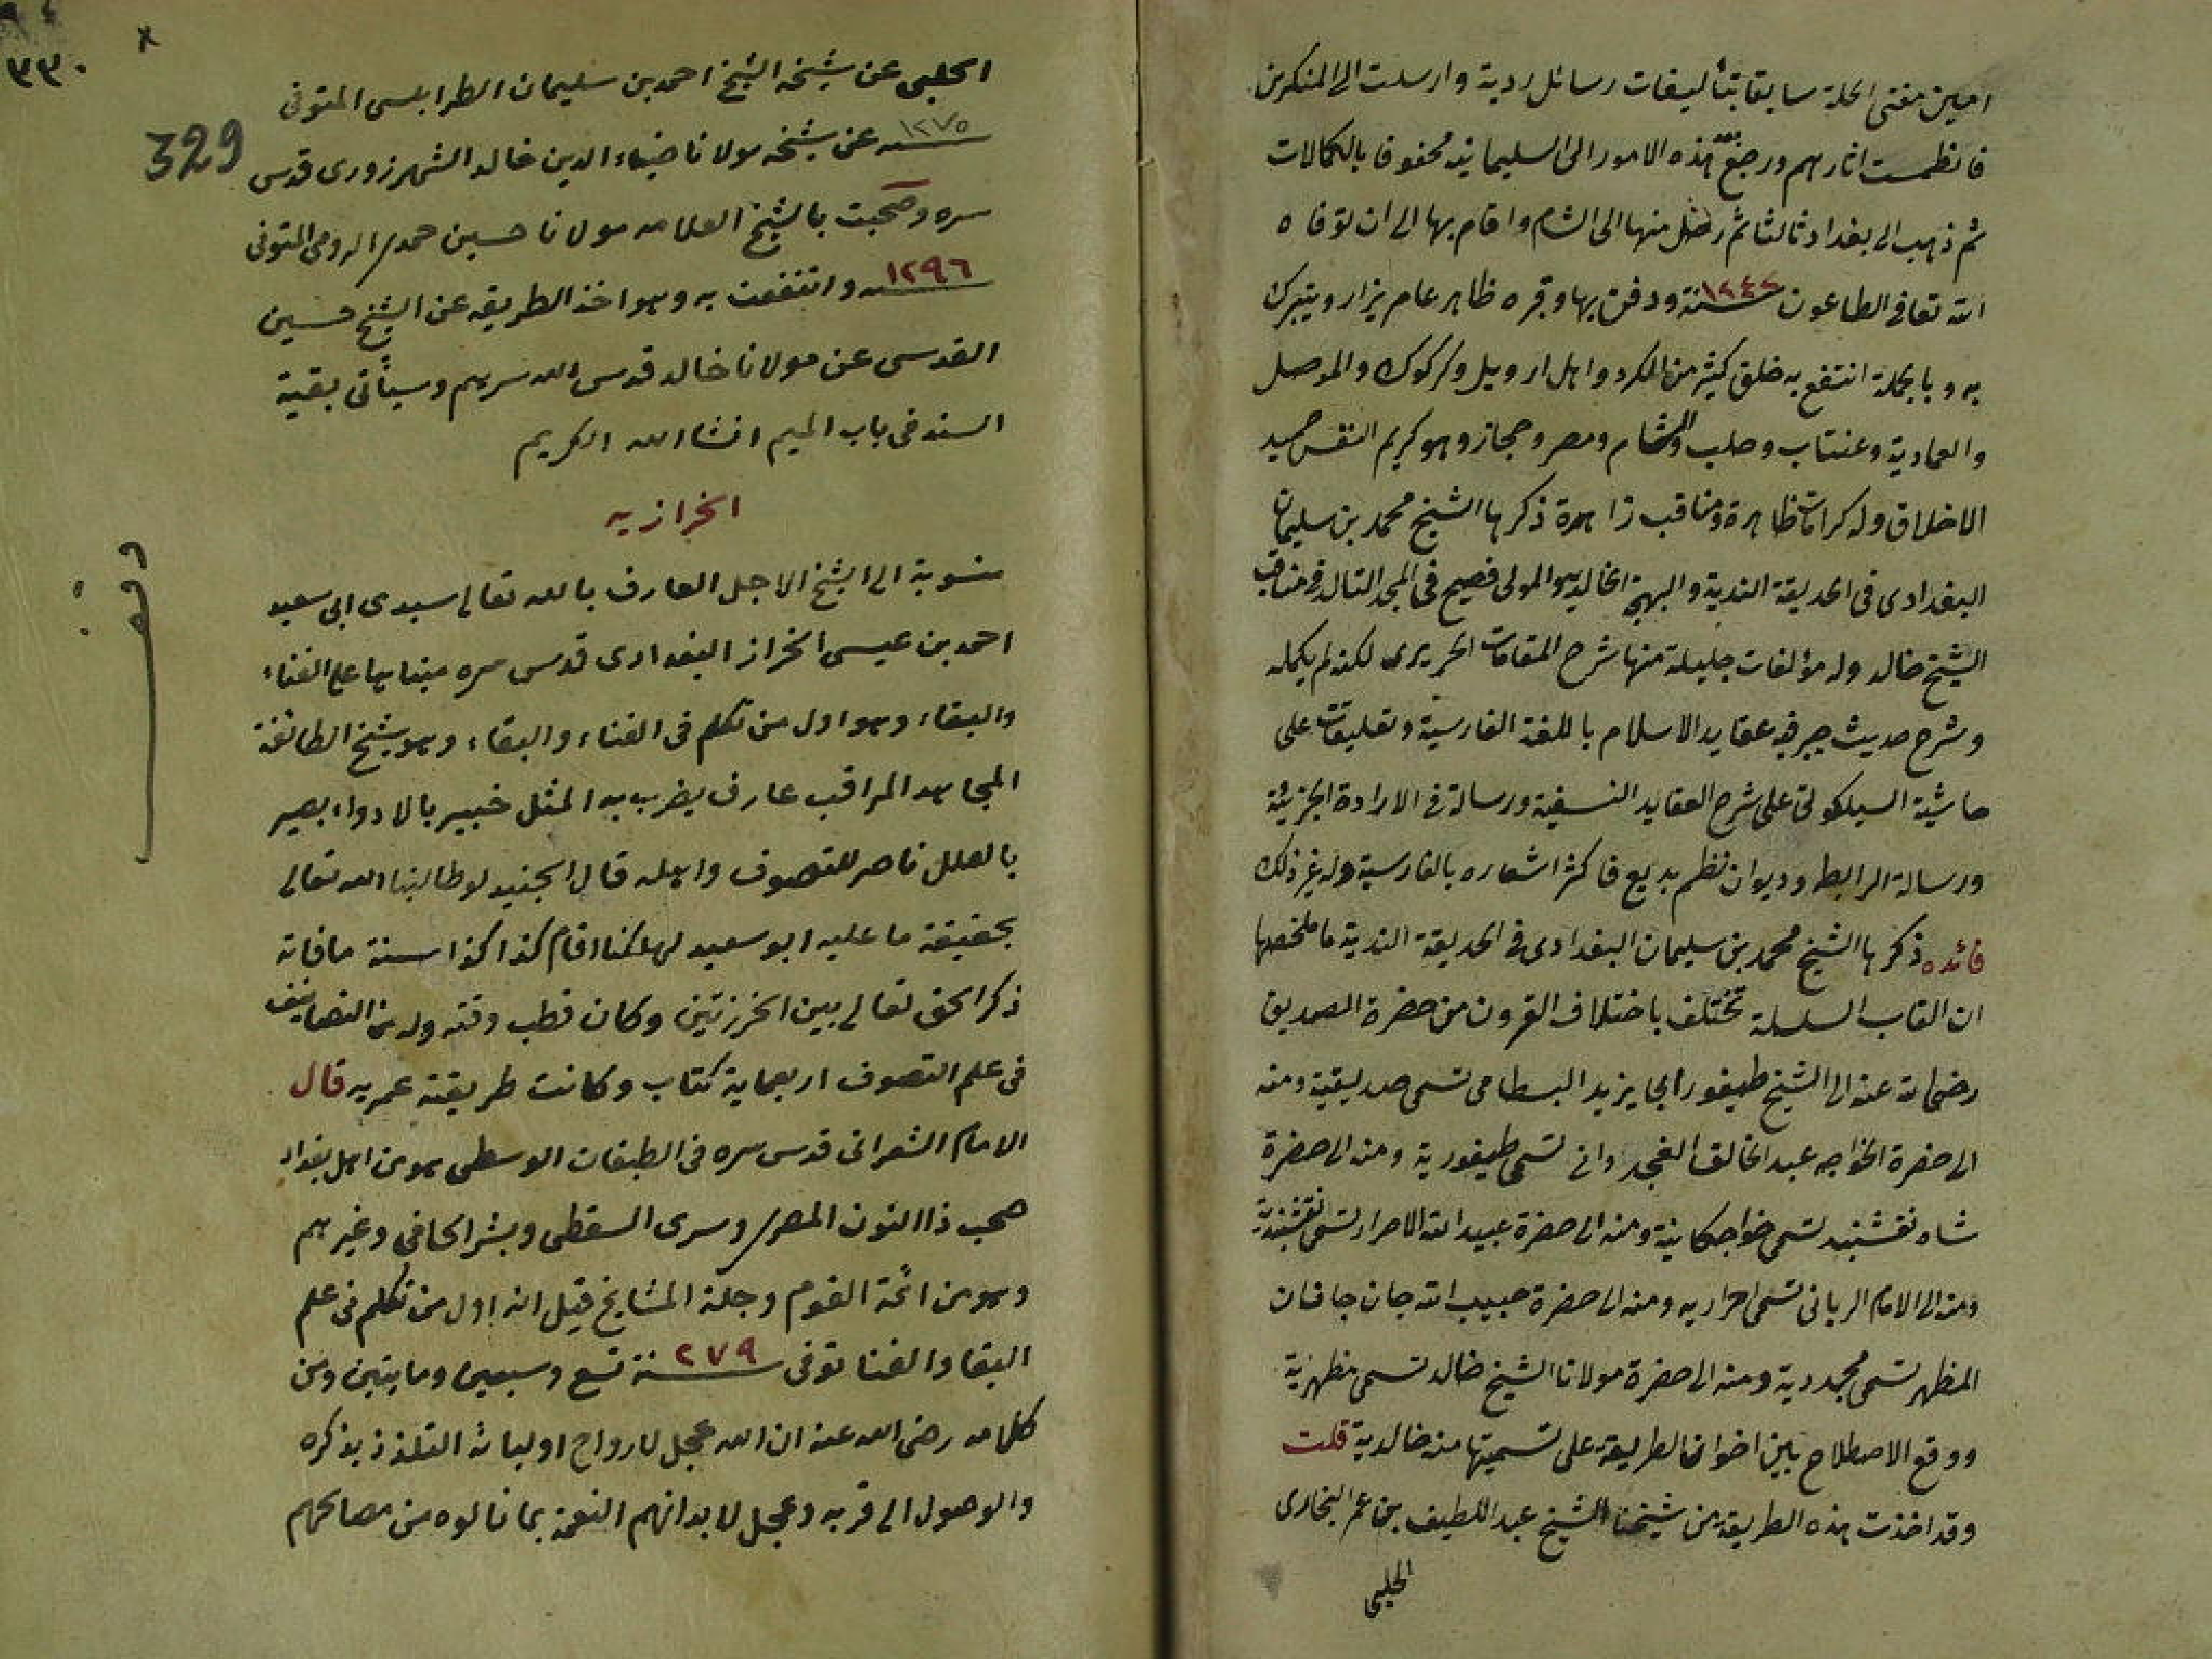 امين مفتى الحلة سابقا بتأليفات رسائل ردية وارسلت الى المنكرين
فانطمست اثارهم ورجع بهذه الامور الى السليمانية محفوفا بالكمالات
ثم ذهب الى بغداد ثالثا ثم رحل منها الى الشام واقام بها الى ان توفاه
الله تعا فى الطاعون سنة ١٢٤٢ ودفن بها وقبره ظاهر عام يزار ويتبرك
به وبالجملة انتفع به خلق كثير من الكرد واهل اربيل وكركوك والموصل
والعمادية وعنتاب وحلب والشام ومصر وحجاز وهو كريم النفس حميد
الاخلاق وله كرامات ظاهرة ومناقب زاهرة ذكرها الشيخ محمد بن سليمان
البغدادى فى الحديقة الندية والبهجة الخالدية والمولى فصيح فى المجد التالد فى مناقب
الشيخ خالد وله مؤلفات جليلة منها شرح المقامات الحريرى لكنه لم يكمله
وشرح حديث جبر فيه عقايد الاسلام باللغة الفارسية وتعليقات على
حاشية السيلكوتى على شرح العقايد النسفية ورسالة فى الارادة الجزئية
ورسالة الرابطه وديوان نظم بديع فاكثر اشعاره بالفارسية وله غير ذلك
فائده ذكرها الشيخ محمد بن سليمان البغدادى فى الحديقة الندية ما ملخصها
ان القاب السلسلة تختلف باختلاف القرون من حضرة الصديق
رضى الله عنه الى الشيخ طيفور ابى يزيد البسطامى تسمى صديقية ومنه
الى حضرة الخواجه عبد الخالق الغجدوانى تسمى طيفورية ومنه الى حضرة
شاه نقشبند تسمى خواجكانية ومنه الى حضرة عبيد الله الاحرار تسمى نقشبندية
ومنه الى الامام الربانى تسمى احراريه ومنه الى حضرة حبيب الله جان جانان
المظهر تسمى مجددية ومنه الى حضرة مولانا الشيخ خالد تسمى مظهرية
ووقع الاصطلاح بين اخوان الطريقة على تسميتها منه خالدية قلت
وقد اخذت هذه الطريقة من شيخنا الشيخ عبد اللطيف بن عمر البخارى
الحلبى
٣٣٠
329
الحلبى عن شيخه الشيخ احمد بن سليمان الطرابلسى المتوفى
سنه ١٢٧٥ عن شيخه مولانا ضياء الدين خالد الشهرزورى قدس
سره وصحبت بالشيخ العلامه مولانا حسين حمدى الرومى المتوفى
سنه ١٢٩٦ وانتفعت به وهو اخذ الطريقه عن الشيخ حسين
القدسى عن مولانا خالد قدس الله سرهم وسيأتى بقية
السند فى باب الميم انشا الله الكريم
الخرازيه
منسوبة الى الشيخ الاجل العارف بالله تعالى سيدى ابى سعيد
احمد بن عيسى الخراز البغدادى قدس سره مبناها على الفناء
والبقاء وهو اول من تكلم فى الفناء والبقاء وهو شيخ الطائفة
المجاهد المراقب عارف يضرب به المثل خبير بالادواء بصير
بالعلل ناصر للتصوف واهله قال الجنيد لو طالبنا الله تعالى
بحقيقة ما عليه ابو سعيد لهلكنا اقام كذا كذا سنة ما فاته
ذكر الحق تعالى بين الخرزتين وكان قطب وقته وله من التصانيف
فى علم التصوف اربعماية كتاب وكانت طريقته عمريه قال
الامام الشعرانى قدس سره فى الطبقات الوسطى هو من اهل بغداد
صحب ذا النون المصرى وسرى السقطى وبشر الحافى وغيرهم
وهو من ائمة القوم وجلة المشايخ قيل انه اول من تكلم فى علم
البقا والفنا توفى سنة ٢٧٩ تسع وسبعين ومايتين ومن
كلامه رضى الله عنه ان الله عجل لارواح اوليائه التلذذ بذكره
والوصول الى قربه وعجل لابدانهم النعمة بما نالوه من مصالحهم
وقف